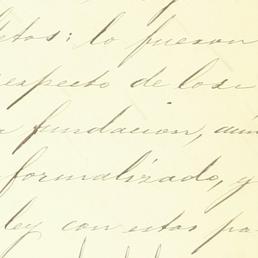 etos: lo fueron
respecto de los
fundacion, aún
formalizado, y
ley con estas pa